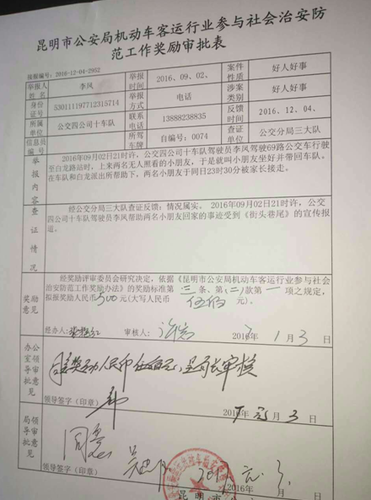 昆明市公安局机动车客运行业参与社会治安防
范工作奖励审批表
2016-12-04-2952
举报人姓名 李凤 举报时间 2016.09.02. 案件性质 好人好事
身份证号 530111197712315714 举报方式 电话 涉案类别 好人好事
所属单位 公交四公司十车队 联系电话 13888238835 反馈时间 2016.12.04.
信息员编号 所驾车牌 自编号:0074 查证单位 公交分局三大队
举报内容
2016年09月02日21时许,公交四公司十车队驾驶员李凤驾驶69路公交车行驶
至白龙路站时,上来两名无人照看的小朋友,于是就叫小朋友坐好并带回车队。
在车队和白龙派出所帮助下,两名小朋友于同日23时30分被家长接走。
查证情况
经公交分局三大队查证反馈:情况属实。2016年09月02日21时许,公
交四公司十车队驾驶员李凤帮助两名小朋友回家的事迹受到《街头巷尾》的宣传报
道。
奖励意见
经奖励评审委员会研究决定,依据《昆明市公安局机动车客运行业参与社会
治安防范工作奖励办法》的奖励标准第三条、第(二)款第一项之规定,
拟报奖励人民币500元(大写人民币伍佰元)
经办人: 审核人: 2016年1月3日
办公室领导审批意见
同意奖励人民币伍佰元,呈局长审核
领导签字(印章)
局领导审批意见
同意
领导签字(印章) 2016年